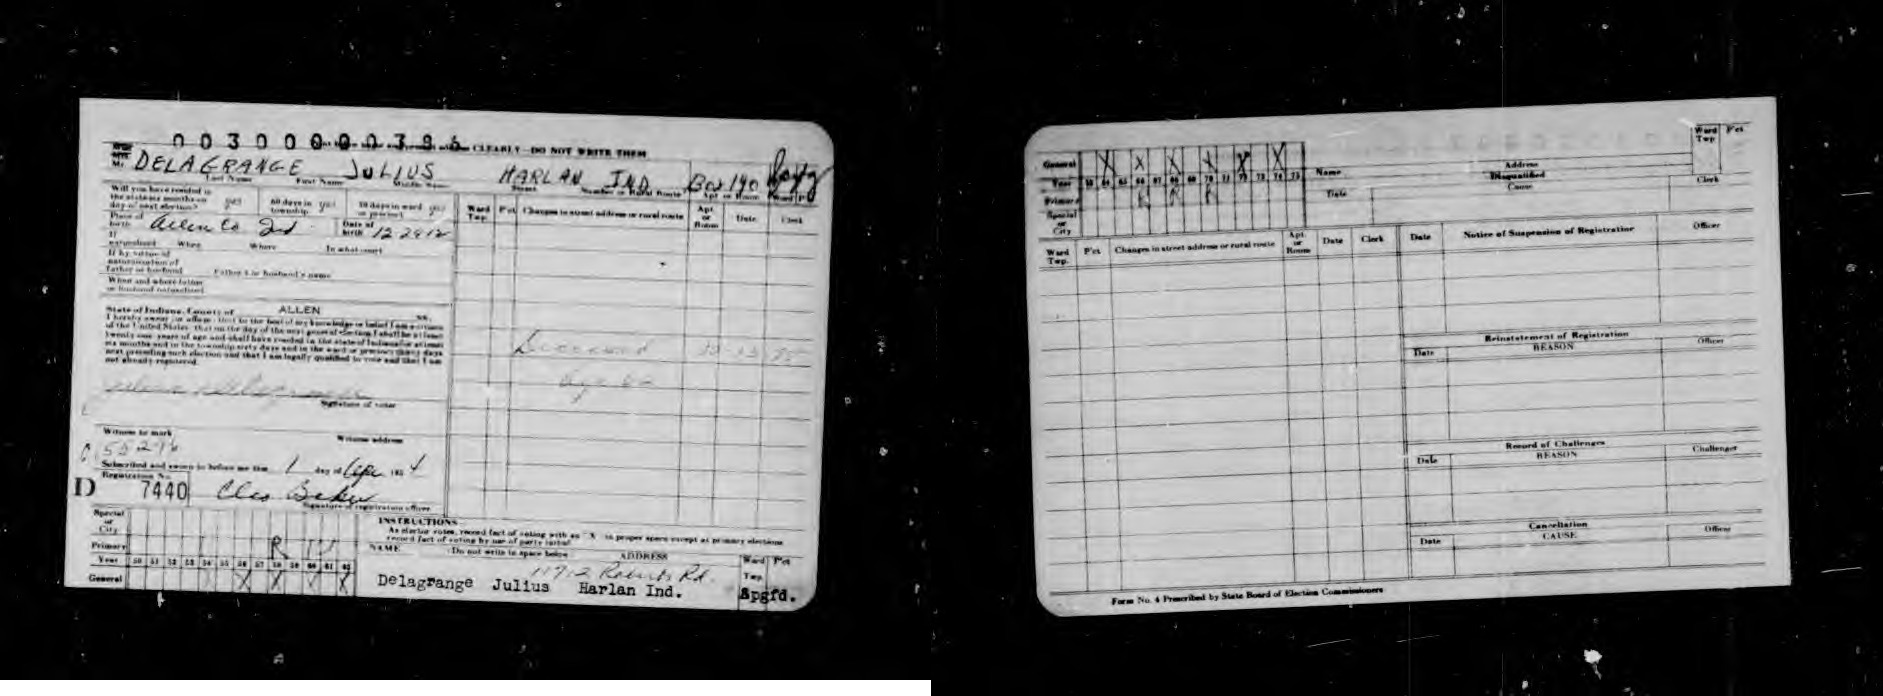 0030000039
CLEARLY - DO NOT WRITE THEM
Mr. DELAGRANGE JULIUS HARLAN IND Box 190
Last Name First Name Middle Name Street Number or Rural Route Apt. or Room Ward Pct
Will you have resided in the state six months on day of next election? yes 60 days in township yes 30 days in ward or precinct yes
Place of birth Allen Co Ind Date of birth 12 24 12
If naturalized When Where In what court
If by virtue of naturalization of father or husband Father's or husband's name
When and where father or husband naturalized
State of Indiana, County of ALLEN ss.
I hereby swear or affirm that to the best of my knowledge or belief I am a citizen
of the United States, that on the day of the next general election I shall be at least
twenty-one years of age and shall have resided in the state of Indiana for at least
six months and in the township sixty days and in the ward or precinct thirty days
next preceding such election and that I am legally qualified to vote and that I am
not already registered.
Julius Delagrange
Signature of voter
Witness to mark Witness address
Subscribed and sworn to before me this 1 day of Apr 195 4
Registration No.
D 7440 Cleo Baker
Signature of registration officer
Ward Twp. Pct Changes in street address or rural route Apt. or Room Date Clerk
Deceased
Special or City
Primary R
Year 50 51 52 53 54 55 56 57 58 59 60 61 62
General X X X X
INSTRUCTIONS
As elector votes, record fact of voting with an "X" in proper space except at primary elections
record fact of voting by use of party initial
NAME (Do not write in space below) ADDRESS Ward Twp. Pct
11912 Roberts Rd.
Delagrange Julius Harlan Ind. Spgfd.
General X X X X X X
Year 63 64 65 66 67 68 69 70 71 72 73 74 75
Primary R R R
Special or City
Name Address Ward Twp Pct
Disqualified
Date Cause Clerk
Ward Twp. Pct Changes in street address or rural route Apt. or Room Date Clerk
Date Notice of Suspension of Registration Officer
Reinstatement of Registration
Date REASON Officer
Record of Challenges
Date REASON Challenger
Cancellation
Date CAUSE Officer
Form No. 4 Prescribed by State Board of Election Commissioners